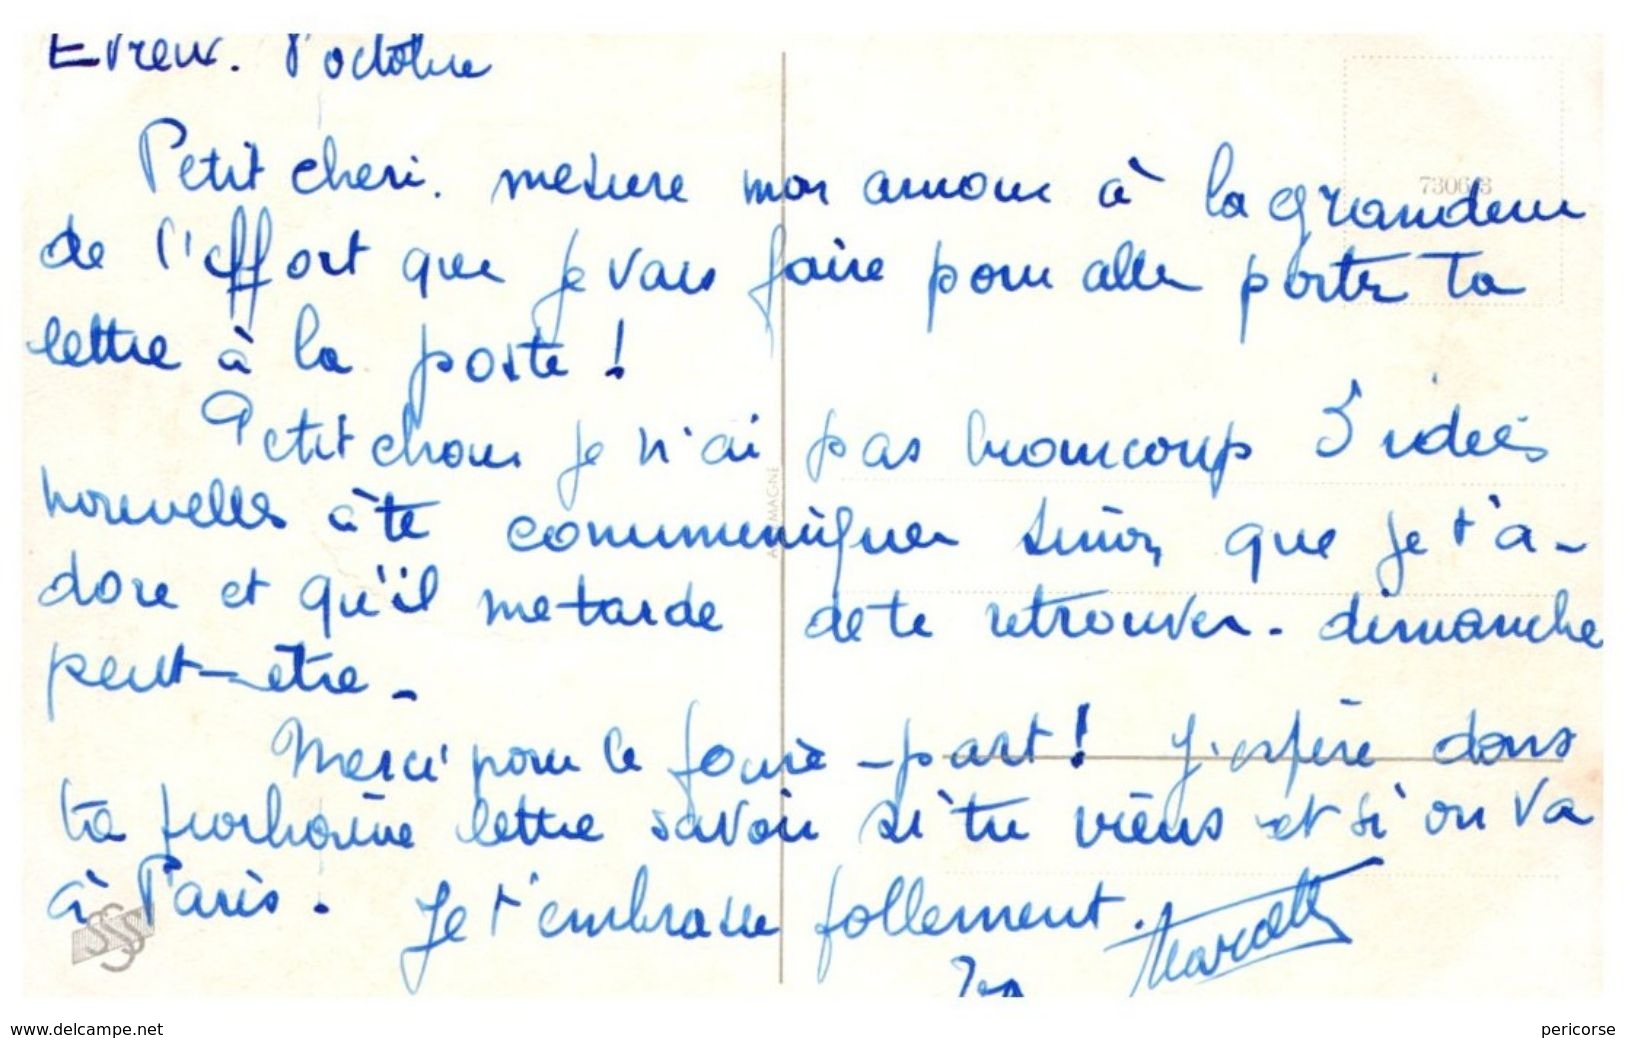 Evreux. 8 octobre
Petit cheri. mesure mon amour à la grandeur
de l'effort que je vais faire pour aller porter ta
lettre à la poste !
Petit chou je n'ai pas beaucoup d'idées
nouvelles à te communiquer sinon que je t'a-
dore et qu'il me tarde de te retrouver - dimanche
peut-etre -
Merci pour le faire-part ! J'espère dans
ta prochaine lettre savoir si tu viens et si on va
à Paris. Je t'embrasse follement.
ALLEMAGNE
SSSS
www.delcampe.net
pericorse